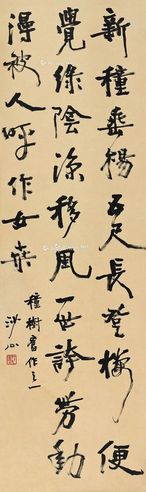 新種垂楊五尺長登樓便
覺綠陰涼移風一世誇勞動
被人呼作女桑
種樹舊作之一
沙